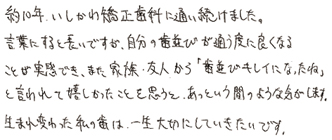 約10年、いしかわ矯正歯科に通い続けました。
言葉にすると長いですが、自分の歯並びが通う度に良くなる
ことが実感でき、また家族・友人から「歯並びキレイになったね」
と言われて嬉しかったことを思うと、あっという間のような気がします。
生まれ変わった私の歯は、一生大切にしていきたいです。